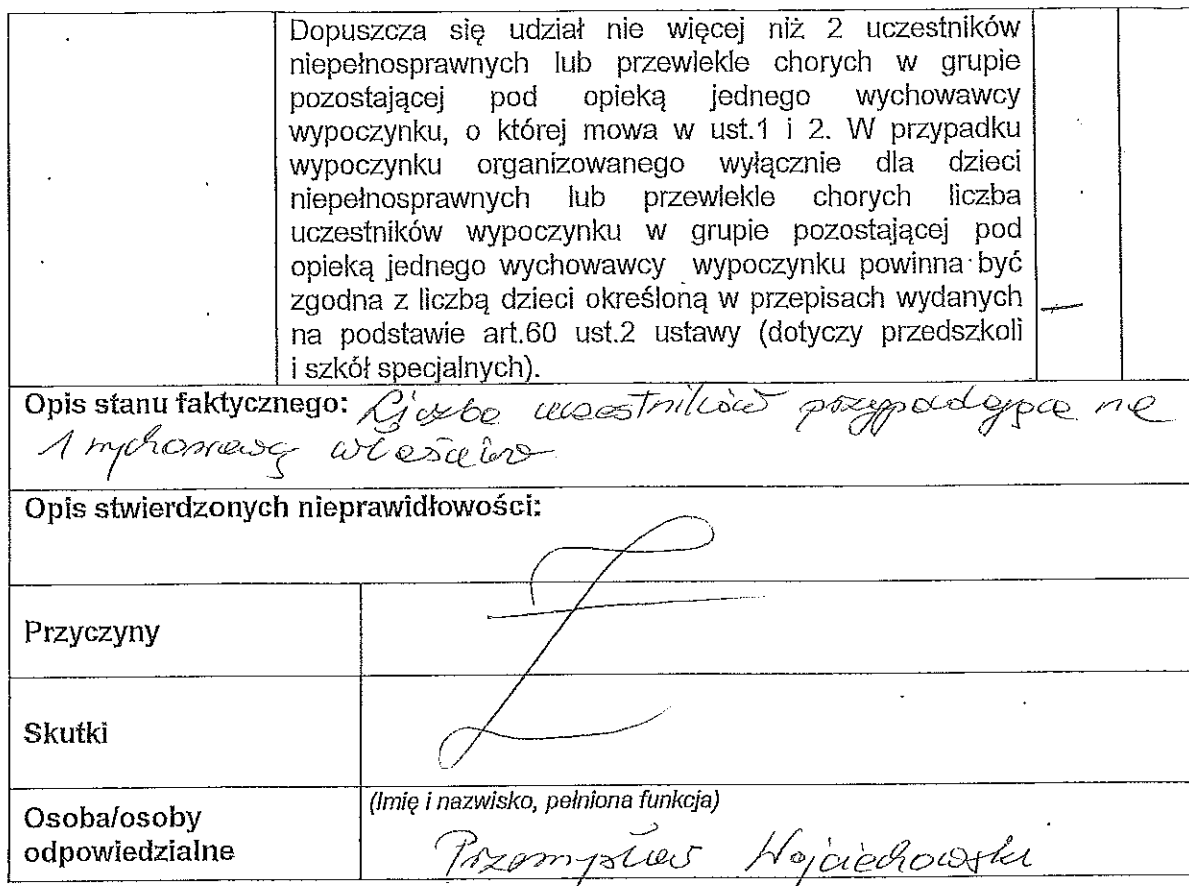 Dopuszcza się udział nie więcej niż 2 uczestników
niepełnosprawnych lub przewlekle chorych w grupie
pozostającej pod opieką jednego wychowawcy
wypoczynku, o której mowa w ust.1 i 2. W przypadku
wypoczynku organizowanego wyłącznie dla dzieci
niepełnosprawnych lub przewlekle chorych liczba
uczestników wypoczynku w grupie pozostającej pod
opieką jednego wychowawcy wypoczynku powinna być
zgodna z liczbą dzieci określoną w przepisach wydanych
na podstawie art.60 ust.2 ustawy (dotyczy przedszkoli
i szkół specjalnych).
—
Opis stanu faktycznego: Liczba uczestników przypadająca na
1 wychowawcę właściwa
Opis stwierdzonych nieprawidłowości:
Przyczyny
Skutki
Osoba/osoby
odpowiedzialne
(Imię i nazwisko, pełniona funkcja)
Przemysław Wojciechowski